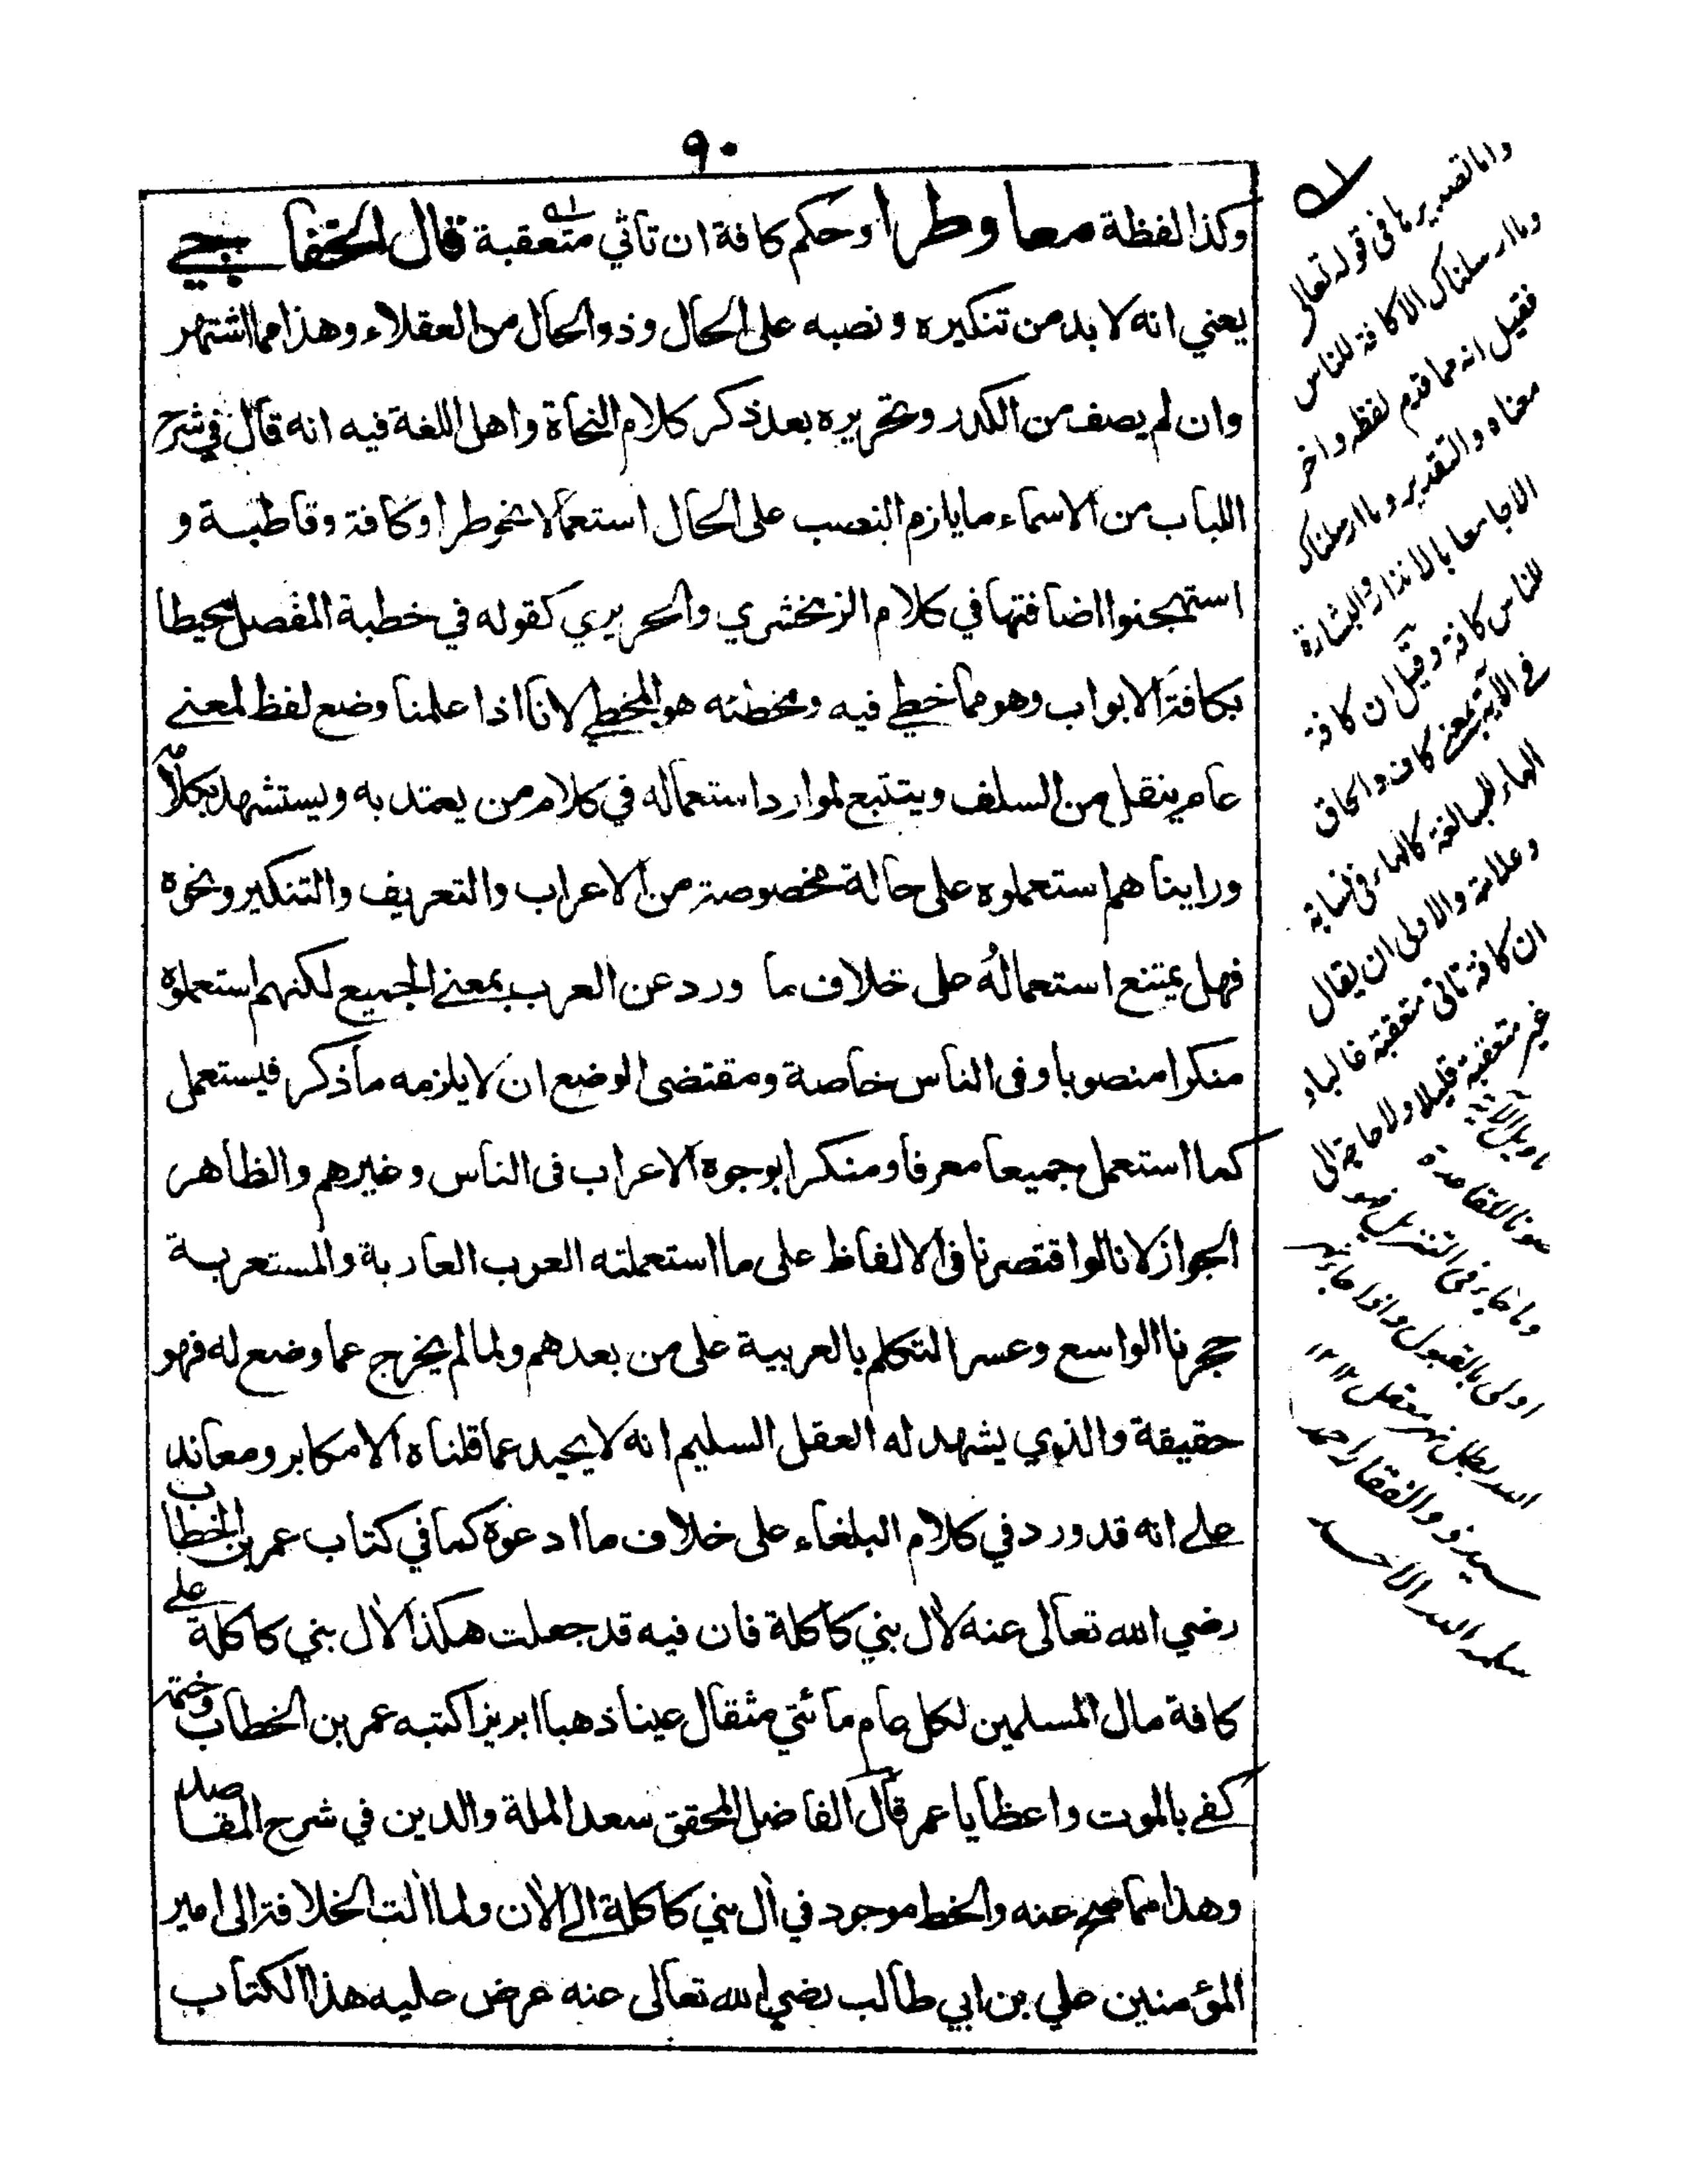 ٩٠
وكذا لفظة معا وطرا وحكم كافة ان تاتي متعقبة قال الخفاجي
يعني انه لا بد من تنكيره ونصبه على الحال وذو الحال من العقلاء وهذا مما اشتهر
وان لم يصف من الكدر وتحريره بعد ذكر كلام النحاة واهل اللغة فيه انه قال في شرح
اللباب من الاسماء ما يلزم النصب على الحال استعمالا نحو طرا وكافة وقاطبة و
استهجنوا اضافتها في كلام الزمخشري والحريري كقوله في خطبة المفصل محيطا
بكافة الابواب وهو مما خطي فيه ومخطئه هو المخطي لانا اذا علمنا وضع لفظ لمعنے
عام بنقل من السلف ويتتبع لموارد استعماله في كلام من يعتد به ويستشهد بكلامه
وراينا هم استعملوه على حالة مخصوصة من الاعراب والتعريف والتنكير ونحوه
فهل يمتنع استعماله على خلاف ما ورد عن العرب بمعنے الجميع لكنهم استعملوه
منكرا منصوبا وفى الناس خاصة ومقتضى الوضع ان لا يلزمه ما ذكر فيستعمل
كما استعمل جميعا معرفا ومنكرا بوجوه الاعراب فى الناس وغيرهم والظاهر
الجواز لانا لوا قتصرنا فى الالفاظ على ما استعملته العرب العاربة والمستعربة
حجرنا الواسع وعسر التكلم بالعربية على من بعدهم ولما لم يخرج عما وضع له فهو
حقيقة والذي يشهد له العقل السليم انه لا يحيد عما قلناه الا مكابر ومعاند
علے انه قد ورد في كلام البلغاء على خلاف ما ادعوه كما في كتاب عمر بن الخطاب
رضي الله تعالى عنه لآل بني كاكلة فان فيه قد جعلت هكذا لآل بني كاكلة علے
كافة مال المسلمين لكل عام مائتي مثقال عينا ذهبا ابريزا كتبه عمر بن الخطاب وختمه
كفے بالموت واعظا يا عمر قال الفاضل المحقق سعد الملة والدين في شرح المقاصد
وهذا مما صح عنه والخط موجود في آل بني كاكلة الے الآن ولما آلت الخلافة الى امير
المؤمنين علي بن ابي طالب رضي الله تعالى عنه عرض عليه هذا الكتاب
فى قوله تعالى
وما ارسلناك الا كافة للناس
فقيل انه مما قدم لفظه واخر
معناه والتقدير وما ارسلناك
الا جامعا بالانذار والبشارة
للناس كافة وقيل ان كافة
في الآية بمعنے كاف والحاق
الهاء للمبالغة كالهاء فى نسابة
وعلامة والاولى ان يقال
ان كافة تاتى متعقبة غالبا و
غير متعقبة قليلا ولا حاجة الى
تاويل الآية
صونا للقاعدة
وما جاء فى التنزيل فهو
اولى بالقبول